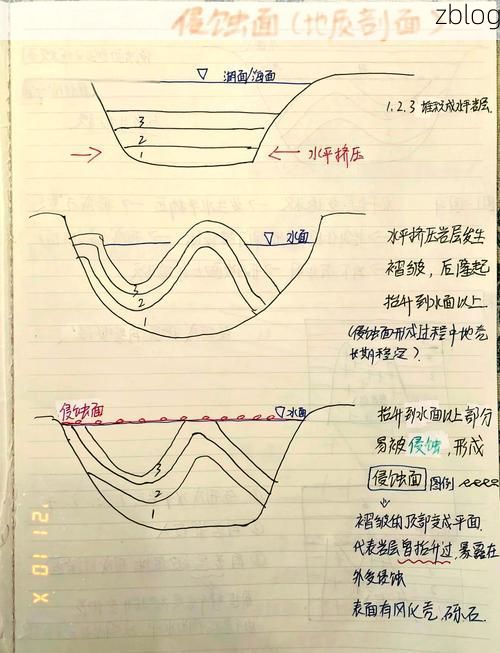 zblog
侵蚀面(地质剖面)
湖面/海面
1.2.3 堆积成水平岩层
3
2
1
水平挤压
水面
水平挤压岩层发生
褶皱，后隆起
抬升到水面以上.
(侵蚀面形成过程中地壳
长期稳定)
3
2
1
侵蚀面
水面
抬升到水面以上部分
易被侵蚀，形成
侵蚀面 图例
褶皱的顶部变成平面.
代表岩层曾抬升过，暴露在
外受侵蚀
表面有风化壳，砾石.
3
2
1
12 10 X